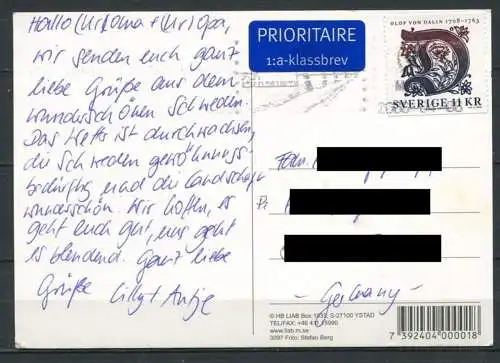 Hallo (Ur)Oma + (Ur)Opa,
wir senden euch ganz
liebe Grüße aus dem
wunderschönen Schweden.
Das Wetter ist durchwachsen,
die Schweden gewöhnungs-
bedürftig und die Landschaft
wunderschön. Wir hoffen, es
geht euch gut, uns geht
es blendend. Ganz liebe
Grüße Lilly + Antje
PRIORITAIRE
1:a-klassbrev
OLOF VON DALIN 1708-1763
SVERIGE 11 KR
Fam.
Germany
© HB LIAB Box 1033, S-27100 YSTAD
TEL/FAX: +46 411
www.liab.m.se
3097 Foto: Stefan Berg
7 392404 000018